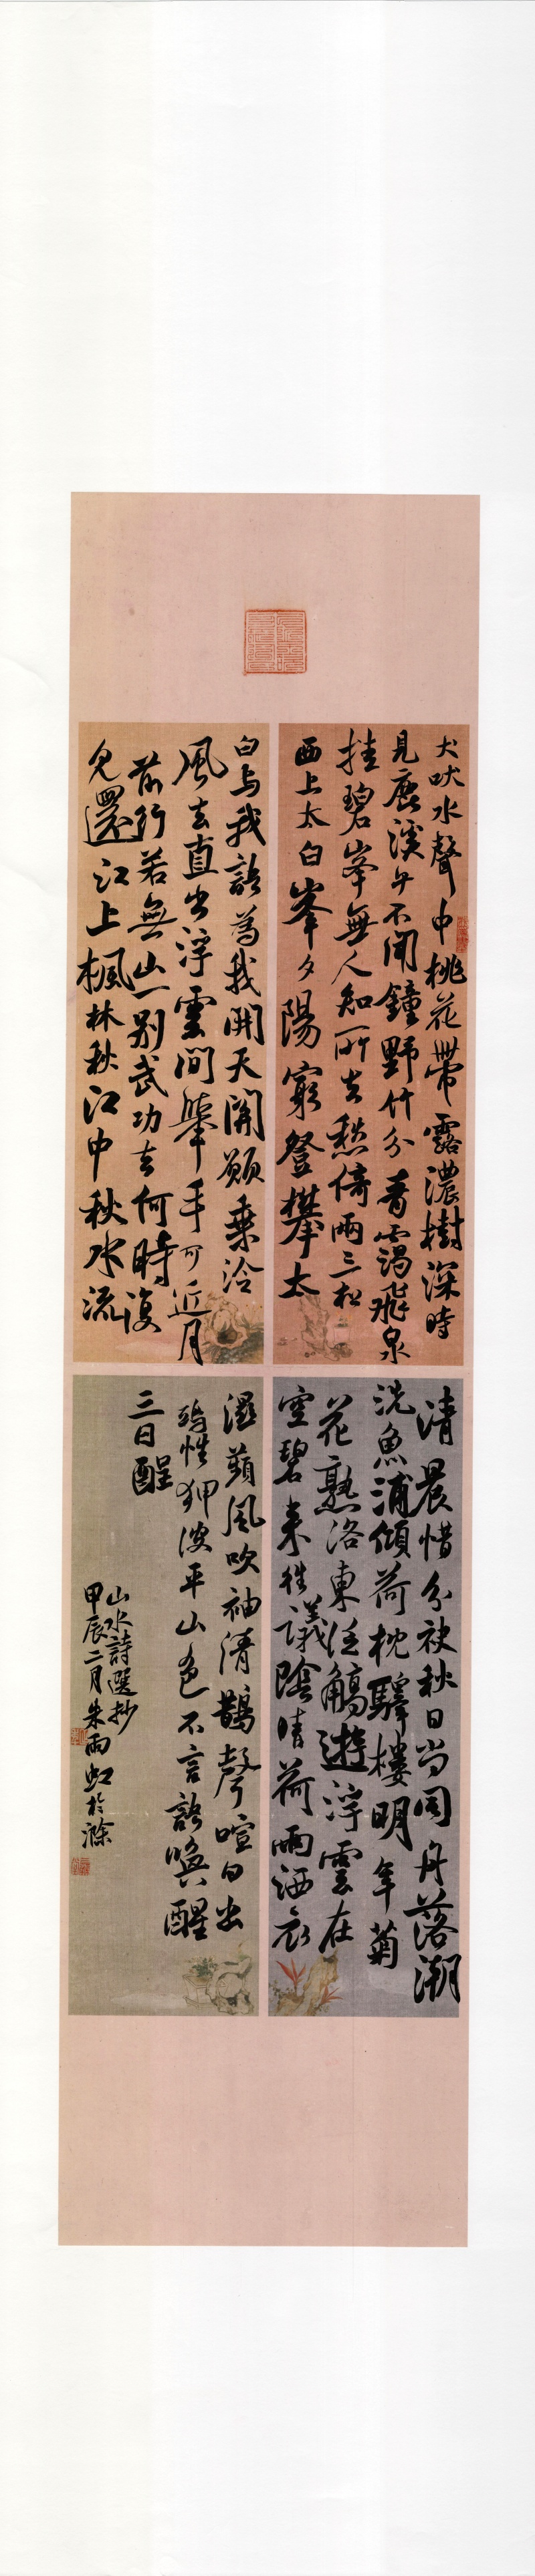 犬吠水聲中桃花帶露濃樹深時
見鹿溪午不聞鐘野竹分青靄飛泉
挂碧峯無人知所去愁倚兩三松
西上太白峯夕陽窮登攀太
白与我語為我開天關願乘泠
風去直出浮雲間舉手可近月
前行若無山一别武功去何時復
見還江上楓林秋江中秋水流
清晨惜分袂秋日尚同舟落潮
洗魚浦傾荷枕驛樓明年菊
花熟洛東泛觴遊浮雲在
空碧來往議陰晴荷雨洒衣
濕蘋風吹袖清鵲聲喧日出
鷗性狎波平山色不言語喚醒
三日酲
山水詩選抄
甲辰二月朱雨虹於滁